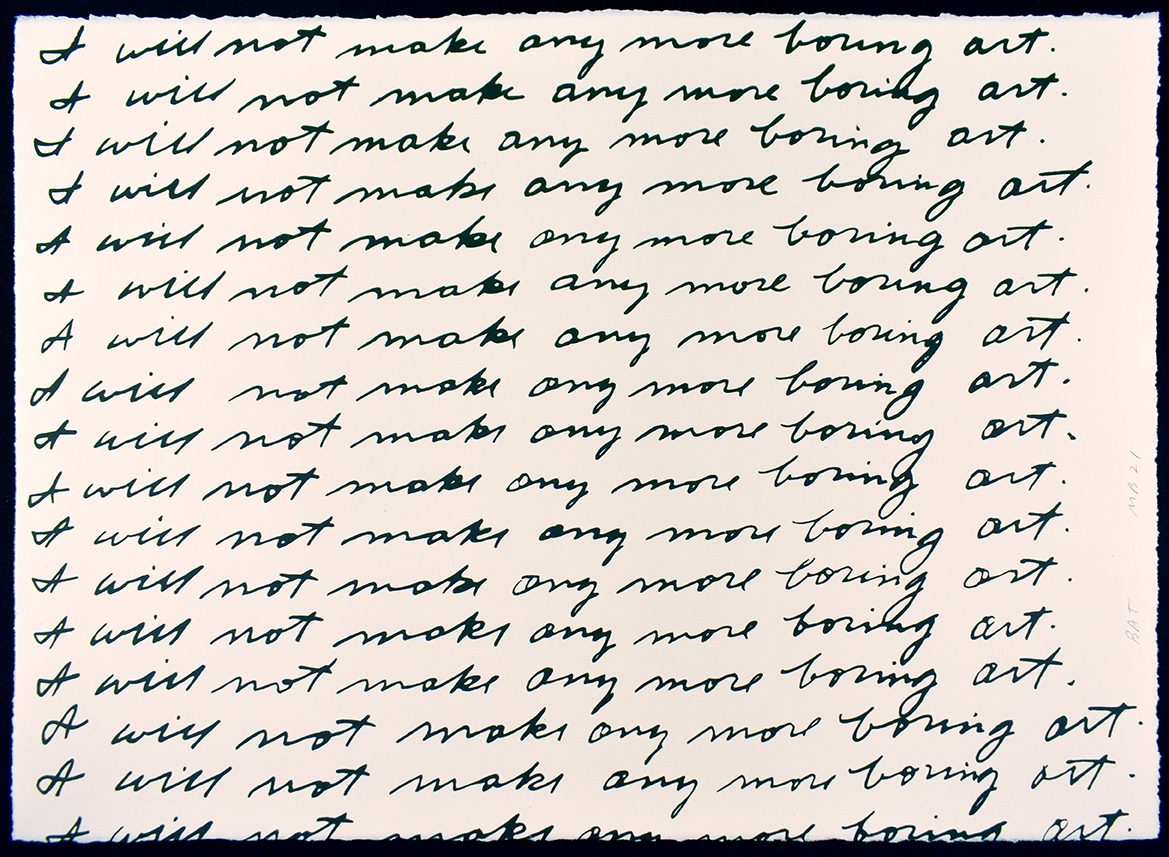 I will not make any more boring art.
I will not make any more boring art.
I will not make any more boring art.
I will not make any more boring art.
I will not make any more boring art.
I will not make any more boring art.
I will not make any more boring art.
I will not make any more boring art.
I will not make any more boring art.
I will not make any more boring art.
I will not make any more boring art.
I will not make any more boring art.
I will not make any more boring art.
I will not make any more boring art.
I will not make any more boring art.
I will not make any more boring art.
I will not make any more boring art.
BAT